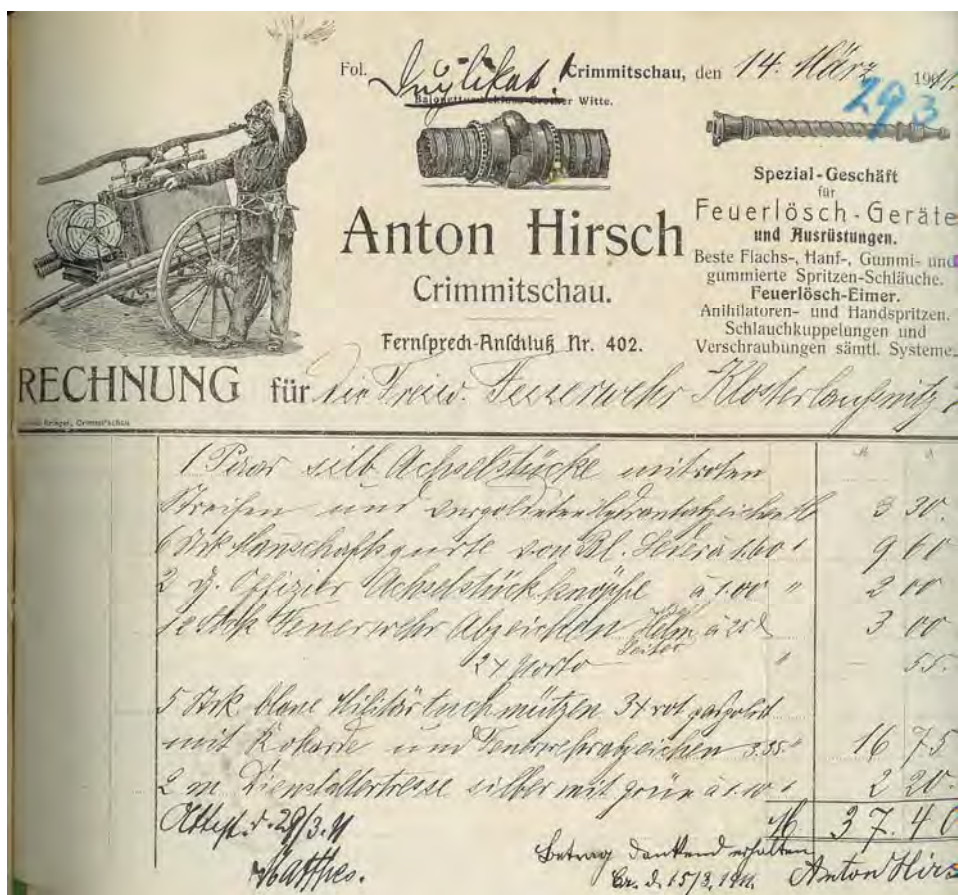 Fol. Duplikat! Crimmitschau, den 14. März 1911.
293
Witte.
Anton Hirsch
Crimmitschau.
Fernsprech-Anschluß Nr. 402.
Spezial-Geschäft
für
Feuerlösch-Geräte
und Ausrüstungen.
Beste Flachs-, Hanf-, Gummi- und
gummierte Spritzen-Schläuche.
Feuerlösch-Eimer.
Anihilatoren- und Handspritzen.
Schlauchkuppelungen und
Verschraubungen sämtl. Systeme.
RECHNUNG für die Freiw. Feuerwehr Klosterlaußnitz
Crimmitschau
M
1 Paar silb. Achselstücke mit roten
Streifen und vergoldeten Hydrantabzeichen M 3 30.
6 Stck Manschaftsgurte von Bl. Leder à 1.60 " 9 60
2 Offizier Achselstückknöpfe à 1.00 " 2 00
12 Stck Feuerwehr Abzeichen Helm à 25 3 00
Leiter
2 x Porto " 55.
5 Stck blaue Militärtuchmützen 3x rot
mit Kokarde und Feuerwehrabzeichen 3.35 " 16 75
2 m Dienstaltertresse silber mit grün à 1.10 " 2 20.
M 37.40
29/3.11
Matthes.
Betrag dankend erhalten
Cr. d. 15/3. 1911. Anton Hirs